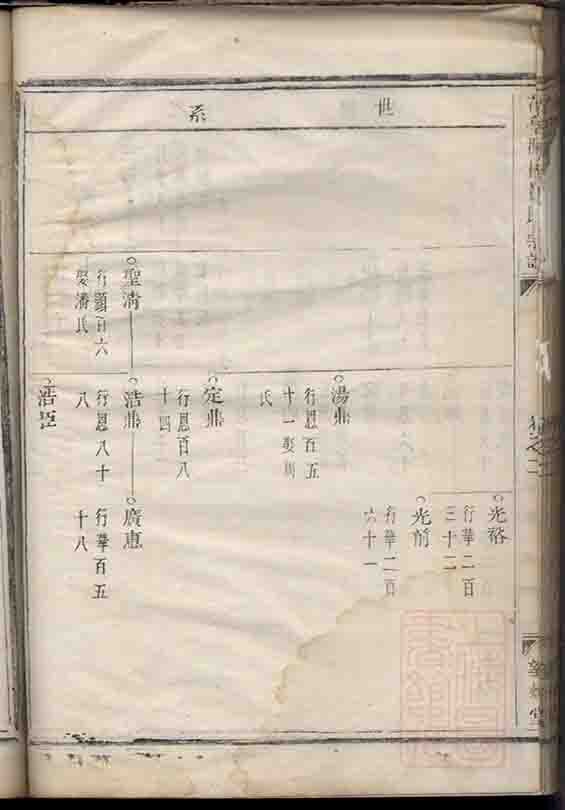 世系
光裕
行華二百
三十二
光前
行華二百
六十一
湯鼎
行恩百五
十一娶周
氏
定鼎
行恩百八
十四
聖清
行顯百六
娶潘氏
浩鼎
行恩八十
八
廣惠
行華百五
十八
浩臣